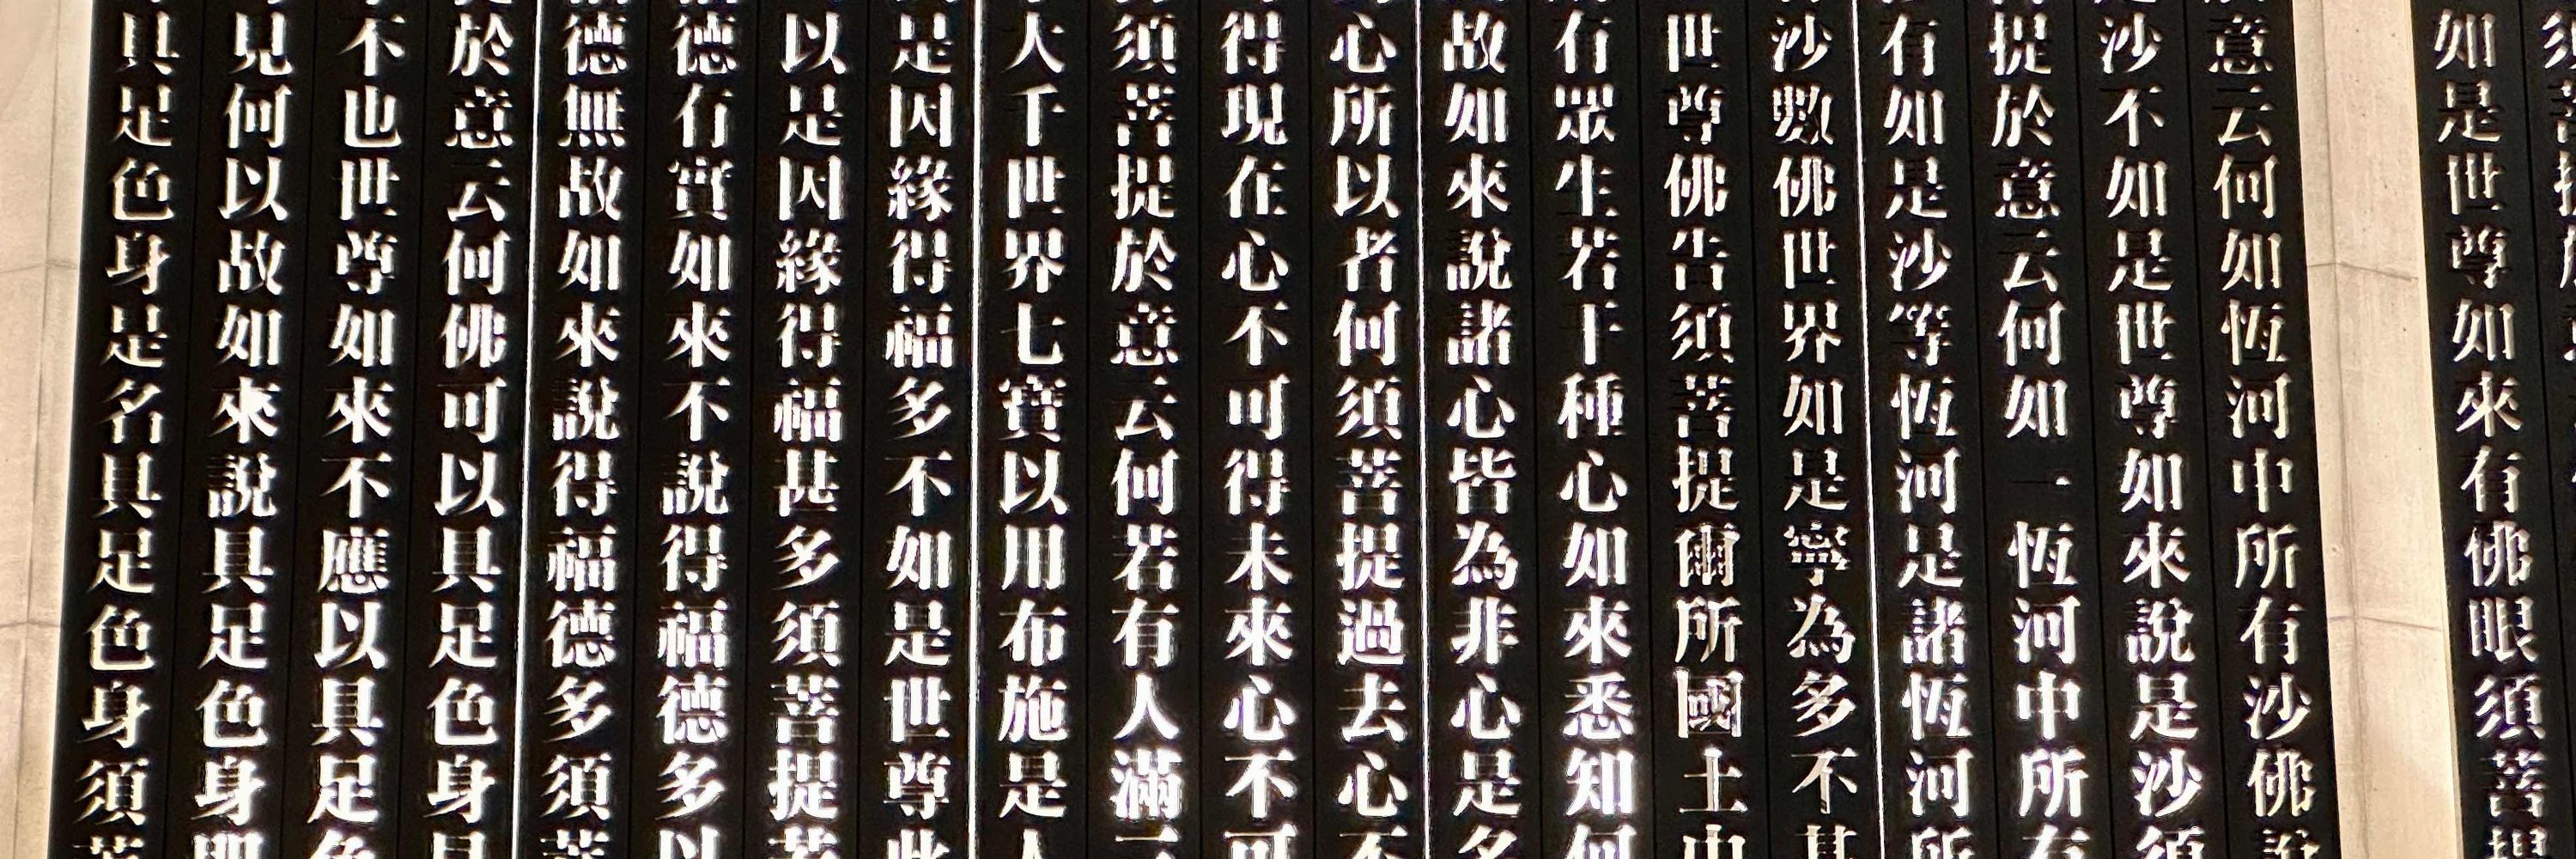 如是世尊如來有佛眼須菩提
意云何如恆河中所有沙佛說
沙不如是世尊如來說是沙須
提於意云何如一恆河中所有
有如是沙等恆河是諸恆河所
沙數佛世界如是寧為多不甚
世尊佛告須菩提爾所國土中
有眾生若干種心如來悉知何
故如來說諸心皆為非心是名
心所以者何須菩提過去心不
得現在心不可得未來心不可
須菩提於意云何若有人滿三
大千世界七寶以用布施是人
是因緣得福多不如是世尊此
以是因緣得福甚多須菩提若
德有實如來不說得福德多以
德無故如來說得福德多須菩
於意云何佛可以具足色身見
不也世尊如來不應以具足色
見何以故如來說具足色身即
具足色身是名具足色身須菩